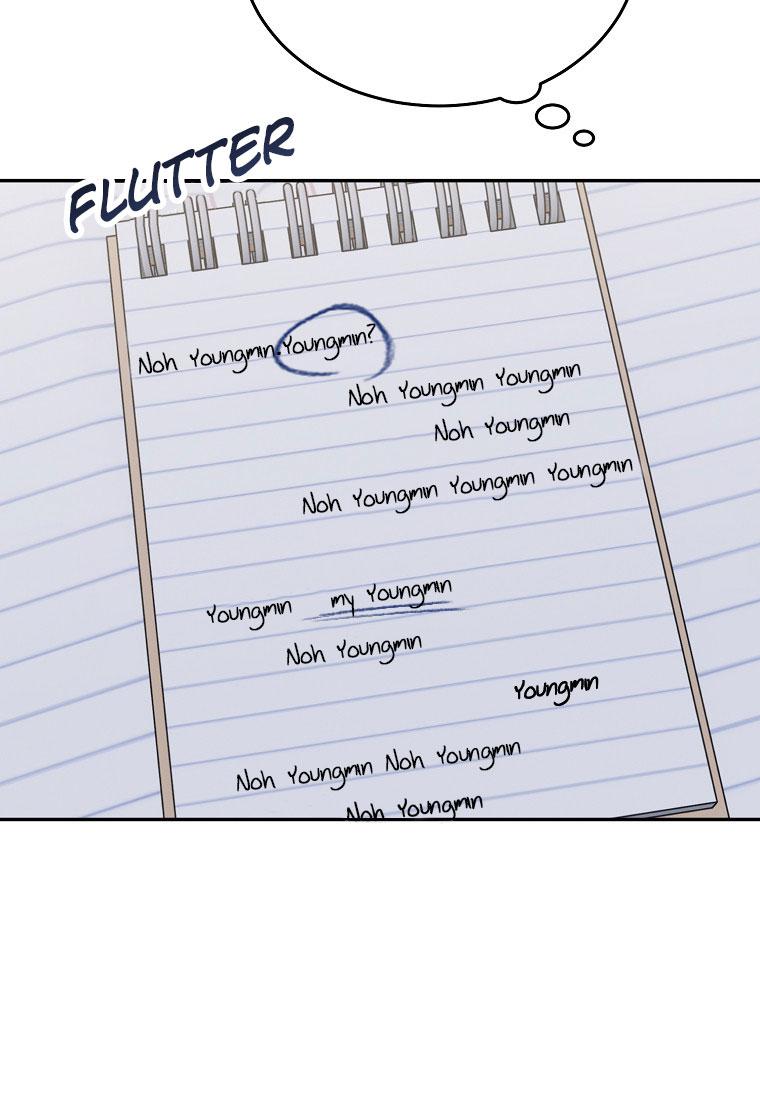 FLUTTER
Noh Youngmin.Youngmin?
Noh Youngmin Youngmin
Noh Youngmin
Noh Youngmin Youngmin Youngmin
Youngmin my Youngmin
Noh Youngmin
Youngmin
Noh Youngmin Noh Youngmin
Noh Youngmin